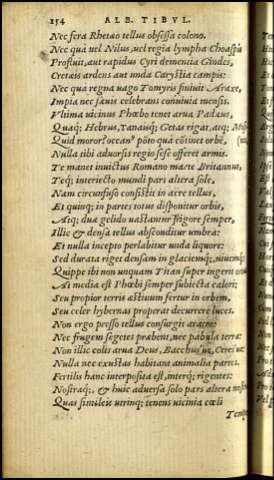 154 ALB. TIBVL.
Nec fera Rhetæo tellus obsessa colono.
Nec quà uel Nilus, uel regia lympha Choaspis
Profluit, aut rapidus Cyri dementia Gindes,
Cretais ardens aut unda Carystia campis:
Nec qua regna uago Tomyris finiuit Araxe,
Impia nec sæuis celebrans conuiuia mensis.
Vltima uicinus Phœbo tenet arua Padæus,
Quaq; Hebrus, Tanaisq; Getas rigat, atq;
Quid moror? occan' põto quà cõtinet orbẽ,
Nulla tibi aduersis regio sese offeret armis.
Te manet inuictus Romano marte Britannus,
Teq; interiecto mundi pars altera sole.
Nam circunfuso consistit in aere tellus,
Et quinq; in partes totus disponitur orbis,
Atq; duæ gelido uastantur frigore semper,
Illic & densa tellus absconditur umbra:
Et nulla incepto perlabitur unda liquore:
Sed durata riget densam in glaciemq;, niuemq;
Quippe ibi non unquam Titan super ingerit
At media est Phœbi semper subiecta calori;
Seu propior terris æstiuum fertur in orbem,
Seu celer hybernas properat decurrere luces.
Non ergo presso tellus consurgit aratro:
Nec frugem segetes præbent, nec pabula terræ:
Non illic colit arua Deus, Bacchusue, Ceresue
Nulla nec exustas habitant animalia partes.
Fertilis hanc interposita est, interq; rigentes:
Nostraq; , & huic aduersa solo pars altera
Quas simileis utrinq; tenens uicinia cœli